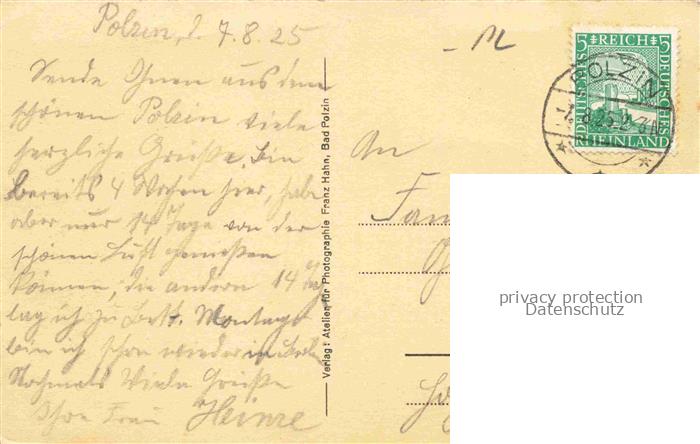 Polzin, d. 7.8.25
Sende Ihnen aus dem
schönen Polzin viele
herzliche Grüße. Bin
bereits 4 Wochen hier, habe
aber nur 14 Tage von der
schönen Luft genießen
können, die andern 14 Tag
lag ich zu Bett. Montag
bin ich schon wieder in
Nochmals Viele Grüße
Ihre Frau Heinze
Verlag: Atelier für Photographie Franz Hahn, Bad Polzin
An
Fam
5 REICH 5
DEUTSCHES
DEUTSCHES
RHEINLAND
POLZIN
7.8.25.2-3N
privacy protection
Datenschutz